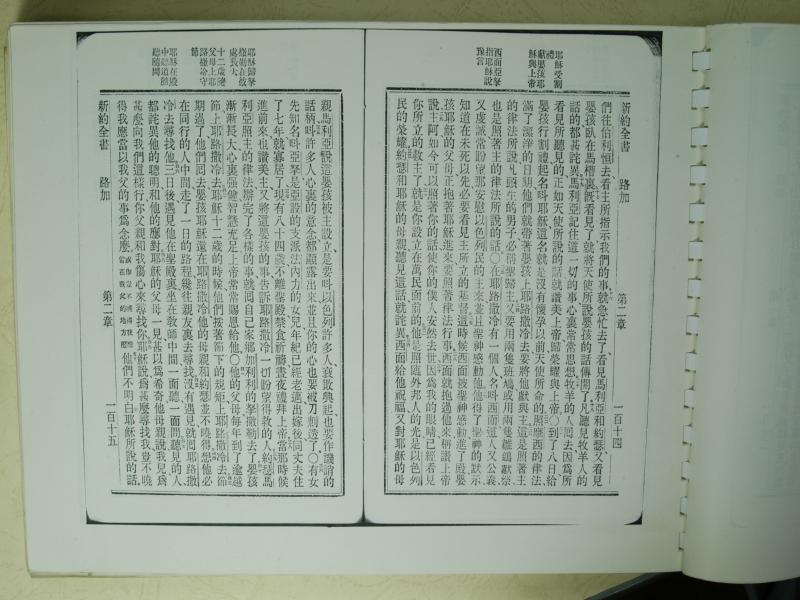 耶穌受割
禮
獻嬰孩耶
穌與上帝
西面亞拏
指耶穌說
豫言
新約全書 路加 第二章 一百十四
們往伯利恒去看主所指示我們的事就急忙去了看見馬利亞和約瑟又看見
嬰孩臥在馬槽裏旣看見了就將天使所說嬰孩的話傳開了凡聽見牧羊人的
話的都甚詫異馬利亞記住這一切的事心裏常常思想牧羊的人囘去因爲所
看見所聽見的正如天使所說的話就讚美上帝歸榮耀與上帝○到了八日給
嬰孩行割禮起名呌耶穌這名就是沒有懷孕以前天使所命的照摩西的律法
滿了潔淨的日期他們就帶著嬰孩上耶路撒冷去要將他獻與主這是照著主
的律法所說凡頭生的男子必稱聖歸主又要用兩隻班鳩或用兩隻雛鴿獻祭
也是照著主的律法所說的話○在耶路撒冷有一個人名呌西面這人又公義
又虔誠常盼望那安慰以色列民的主來並且聖神感動他他得了聖神的默示
知道在未死以先必要看見主所立的基督這時候西面被聖神感動進了殿嬰
孩耶穌的父母正抱著耶穌進來要照著律法行事西面就抱過他來稱讚上帝
說主阿如今可以照著你的話使你的僕人安然去世因爲我的眼睛已經看見
你所立的救主了就是你設立在萬民面前的他是照隨外邦人的光是以色列
民的榮耀約瑟和耶穌的母親聽見這話就詫異西面給他祝福又對耶穌的母
耶穌歸拏
撒勒在彼
處長大
十二歲隨
父母上耶
路撒冷守
節
耶穌在殿
中聽道
聽隨問
親馬利亞說這嬰孩被主設立是要呌以色列許多人衰敗興起也要作譏誚的
話柄呌許多人心裏的意念都顯露出來並且你的心也要被刀刺透了○有女
先知名呌亞拏是亞設的支派法內力的女兒年紀已經老邁出嫁後同丈夫住
了七年就寡居了現有八十四歲不離聖殿禁食祈禱晝夜禮拜上帝當那時候
進前來也讚美主又將這嬰孩的事告訴耶路撒冷一切盼望得救的人約瑟馬
利亞照主的律法辦完了各樣的事就囘自己家鄉加利利的拏撒勒去了嬰孩
漸漸長大心裏强健智慧充足上帝常常賜恩給他○他的父母每年到了逾越
節上耶路撒冷去耶穌十二歲的時候他們按著節下的規矩上耶路撒冷去節
期過了他們囘去嬰孩耶穌還在耶路撒冷他的母親和約瑟並不曉得想他必
在同行的人中間走了一日的路程幾往親友裏去尋找沒有遇見就囘耶路撒
冷去尋找他三日後遇見他在聖殿裏坐在敎師中間一面聽一面問聽見的人
都詫異他的聰明和他的應對耶穌的父母一見甚以爲希奇他母親說我兒爲
甚麼向我們這樣行你父親和我傷心來尋找你耶穌說爲甚麼尋找我豈不曉
得我應當以我父的事爲念麼他們不明白耶穌所說的話
新約全書 路加 第二章 一百十五